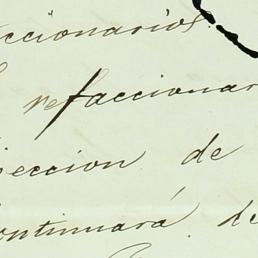 ccionarios.
refaccionar
eccion de
ontinuará de